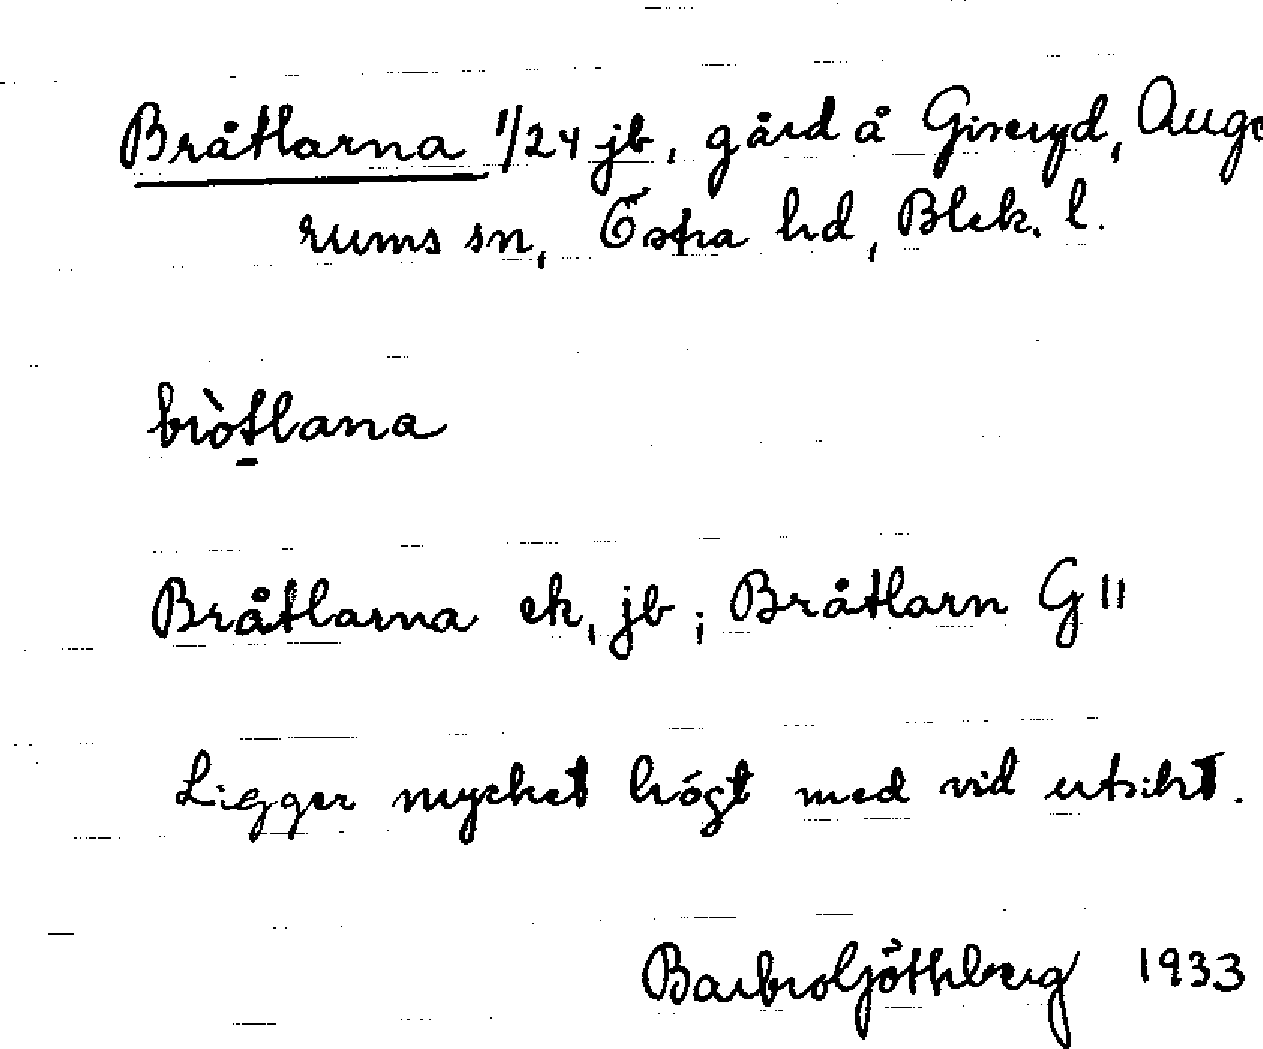 Bråtlarna 1/24 jb, gård å Giseryd, Auge
rums sn, Östra hd, Blek. l.
bròtlana
Bråtlarna ek, jb; Bråtlarn G II
Ligger mycket högt med vid utsikt.
Barbro Göthberg 1933